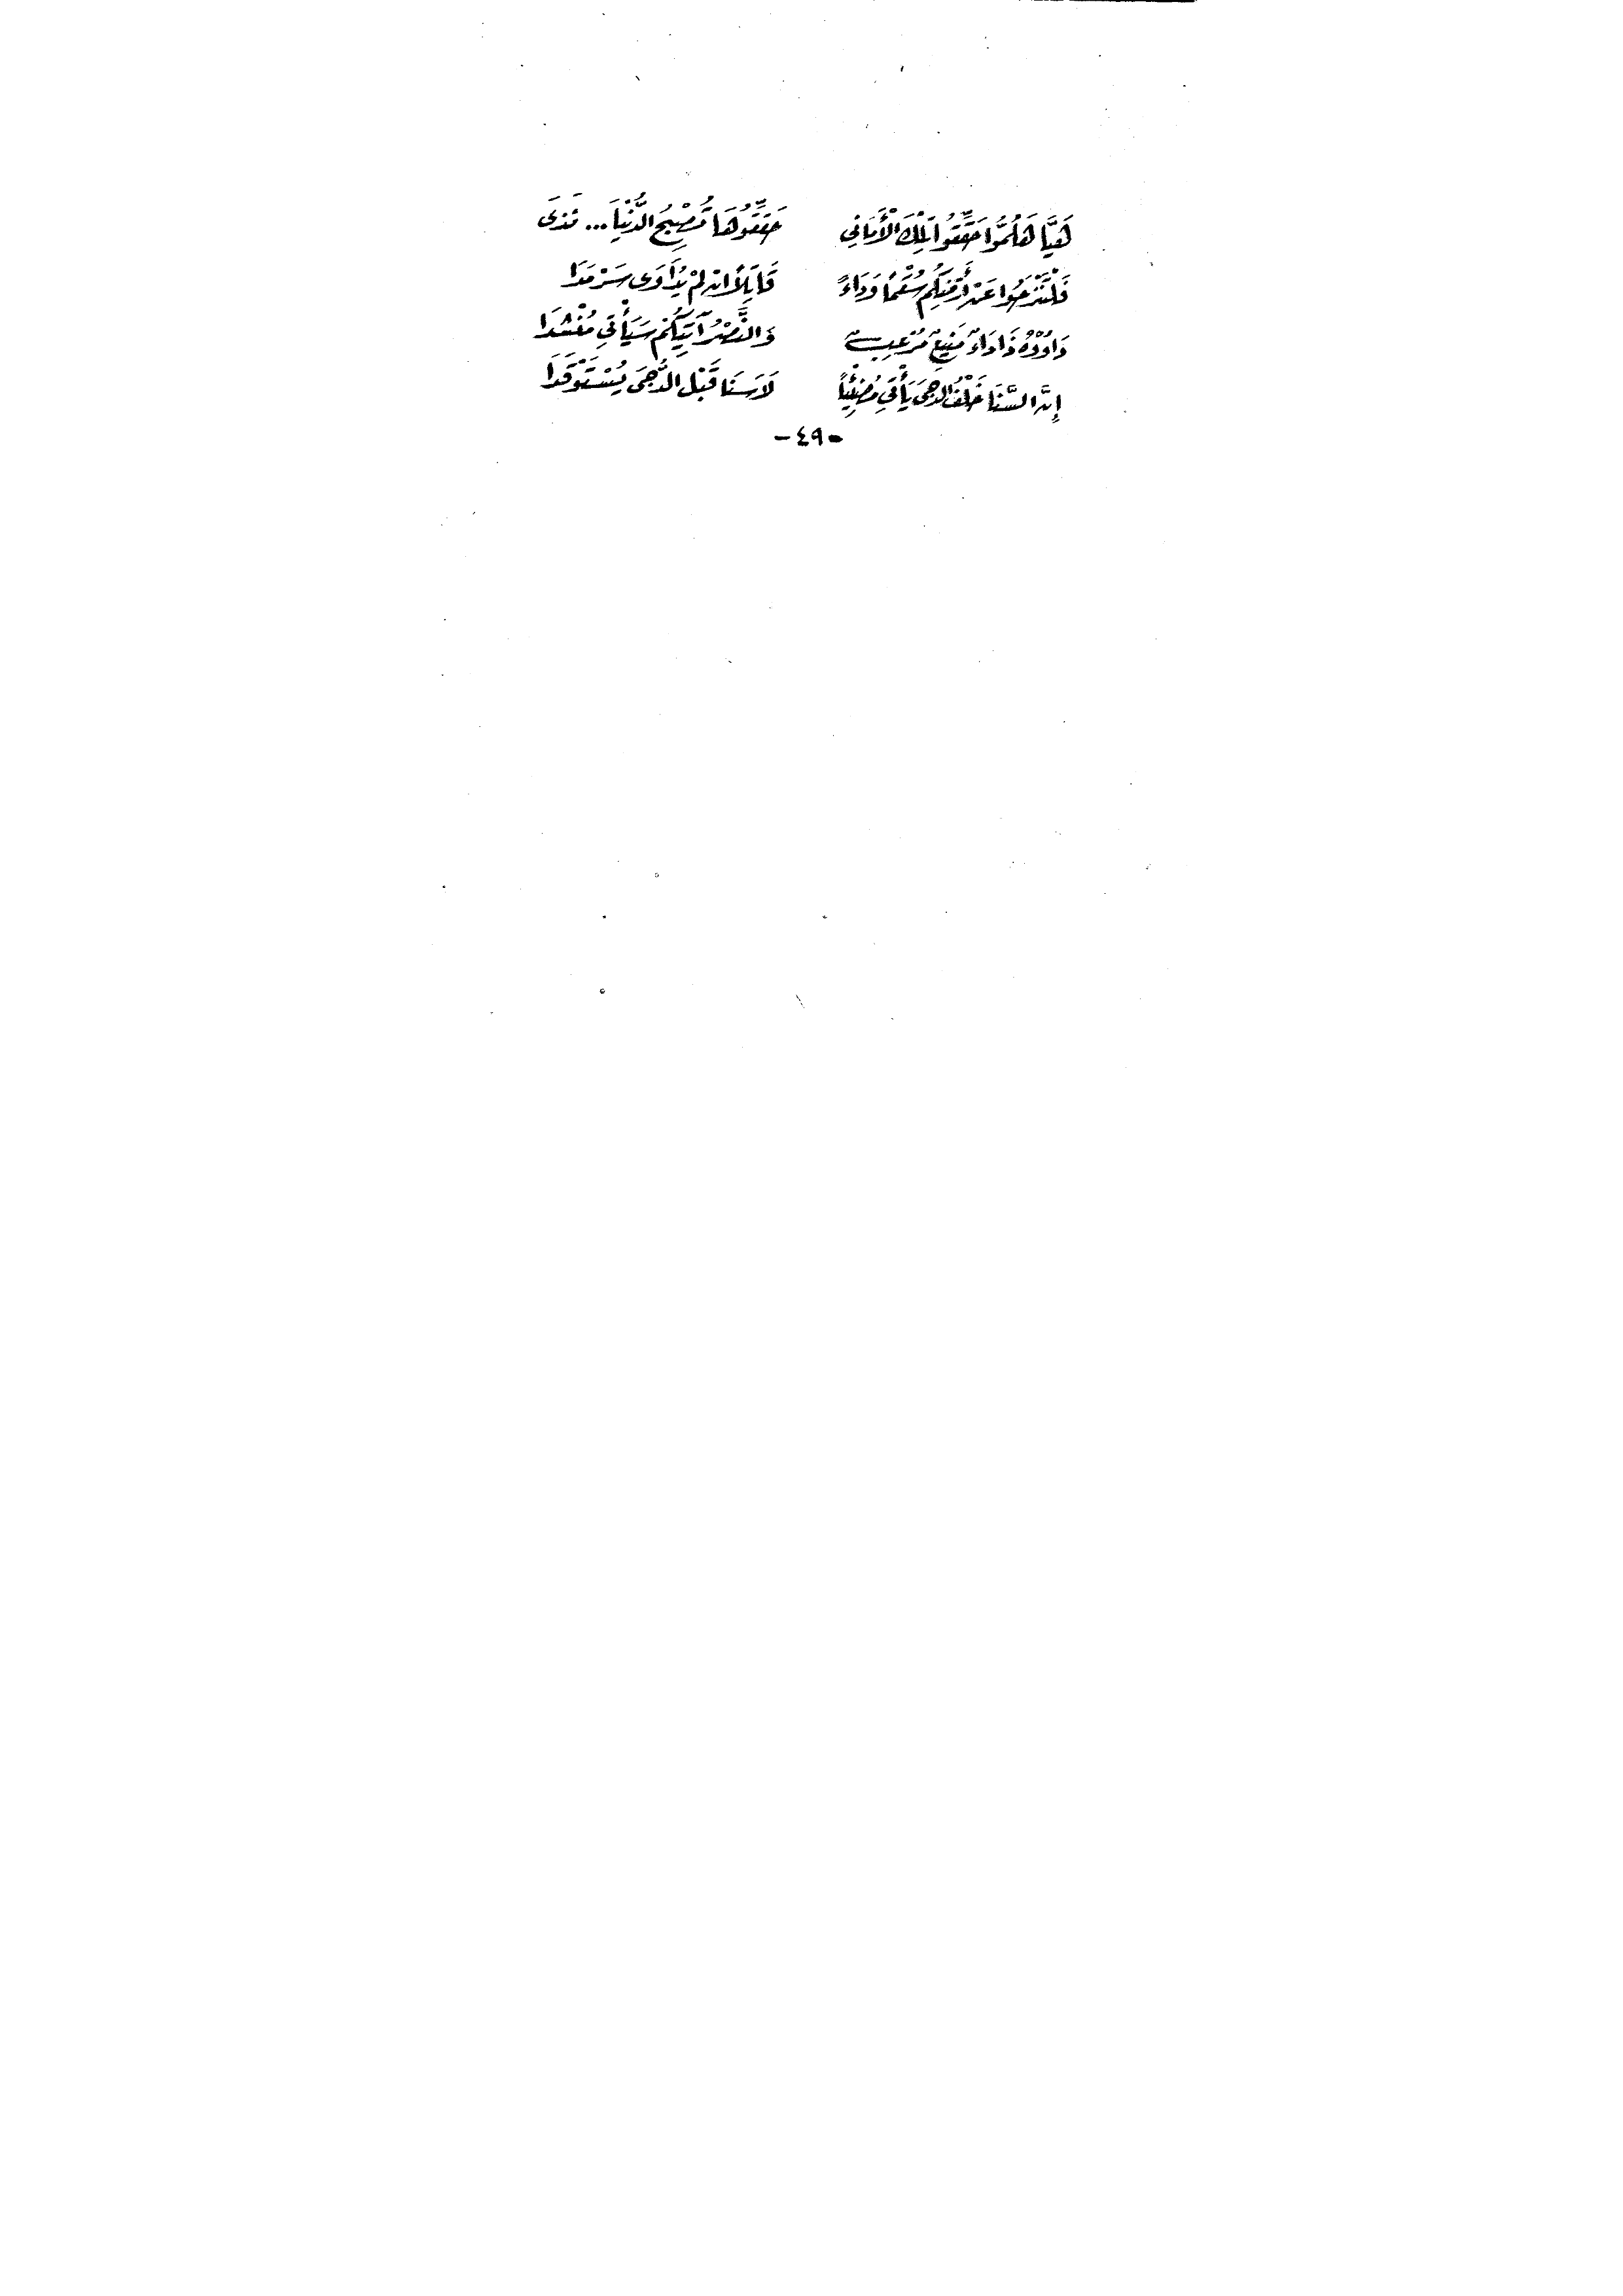 هَيَّا هَلُمُّوا حَقِّقُوا تِلْكَ الْأَمَانِي حَقِّقُوهَا تُصْبِحُ الدُّنْيَا... نَدَى
فَلْتَنْزَحُوا عَنْ أَرْضِكُم سُقْمًا وَدَاءً قَاتِلًا ان لَمْ يُدَاوَى سَرْمَدَا
دَاوُوهُ ذَا دَاءٌ مَنِيعٌ مُرْعِبٌ وَالنَّصْرُ آتِيكُمْ سَيَأْتِي مُنْشِدَا
إِنَّ السَّنَا خَلْفَ الدجَى يَأْتِي مُضِيئًا لَا سَنَا قَبْلَ الدُّجَى يُسْتَوْقَدَا
- ٤٩ -